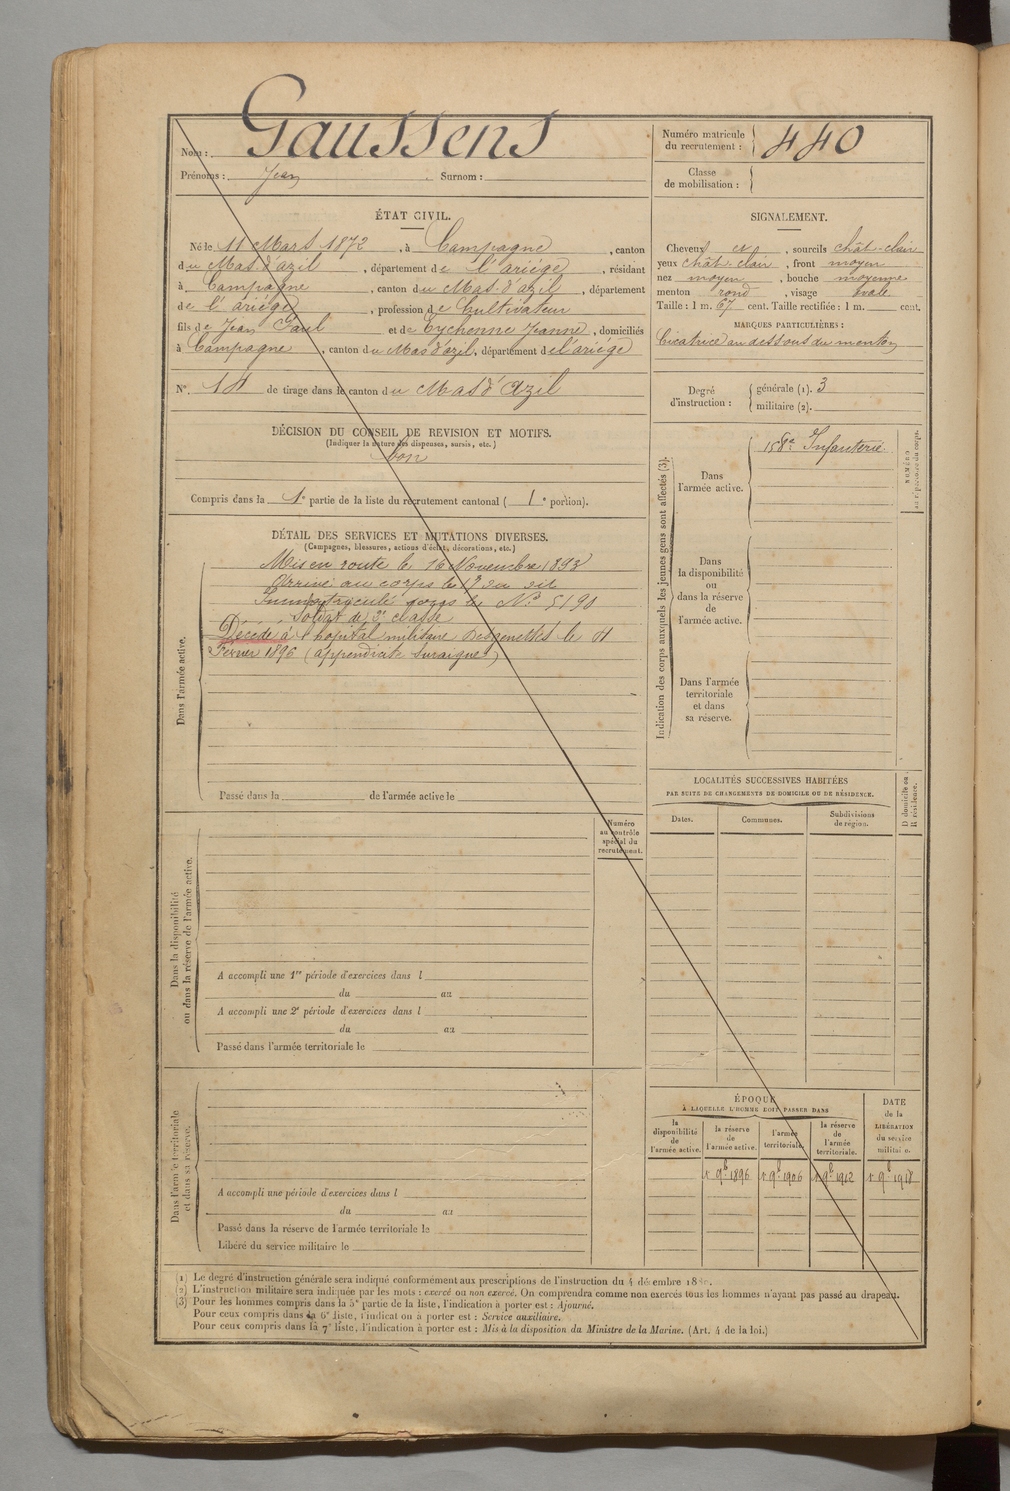 Nom : Gaussens
Prénoms : Jean Surnom :
Numéro matricule du recrutement : 440
Classe de mobilisation :
ÉTAT CIVIL.
Né le 11 Mars 1872, à Campagne, canton
du Mas d'azil, département de l'ariége, résidant
à Campagne, canton du Mas-d'azil, département
de l'ariége, profession de Cultivateur
fils de Jean Paul et de Eychenne Jeanne, domiciliés
à Campagne, canton du Mas d'azil, département de l'ariége
N°. de tirage dans le canton du Mas d'Azil
DÉCISION DU CONSEIL DE REVISION ET MOTIFS.
(Indiquer la nature des dispenses, sursis, etc.)
bon
Compris dans la 1e partie de la liste du recrutement cantonal ( 1e portion).
SIGNALEMENT.
Cheveux et, sourcils chât-clair
yeux chât-clair, front moyen
nez moyen, bouche moyenne
menton rond, visage ovale
Taille : 1 m. 67 cent. Taille rectifiée : 1 m. cent.
MARQUES PARTICULIÈRES :
Cicatrice au dessous du menton
Degré d'instruction : générale (1). 3
militaire (2).
DÉTAIL DES SERVICES ET MUTATIONS DIVERSES.
(Campagnes, blessures, actions d'éclat, décorations, etc.)
Dans l'armée active.
Mis en route le 16 Novembre 1893
Arrivé au corps le 17 du dit
Immatriculé sous le N° 5190
Soldat de 2e classe
Décédé à l'hopital militaire Desgenettes le
Février 1896 (appendicite suraigue)
Passé dans la de l'armée active le
Indication des corps auxquels les jeunes gens sont affectés (3).
NUMÉRO au répertoire du corps.
Dans l'armée active.
158e Infanterie
Dans la disponibilité ou dans la réserve de l'armée active.
Dans l'armée territoriale et dans sa réserve.
LOCALITÉS SUCCESSIVES HABITÉES
PAR SUITE DE CHANGEMENTS DE DOMICILE OU DE RÉSIDENCE.
Dates. Communes. Subdivisions de région. D domicile ou R résidence.
Dans la disponibilité ou dans la réserve de l'armée active.
Numéro au contrôle spécial du recrutement.
A accompli une 1re période d'exercices dans l
du au
A accompli une 2e période d'exercices dans l
du au
Passé dans l'armée territoriale le
Dans l'armée territoriale et dans sa réserve.
A accompli une période d'exercices dans l
du au
Passé dans la réserve de l'armée territoriale le
Libéré du service militaire le
ÉPOQUE
À LAQUELLE L'HOMME DOIT PASSER DANS
la disponibilité de l'armée active.
la réserve de l'armée active.
l'armée territoriale.
la réserve de l'armée territoriale.
DATE de la LIBÉRATION du service militaire.
1er 9bre 1896 1er 9bre 1906 1er 9bre 1912 1er 9bre 1918
(1) Le degré d'instruction générale sera indiqué conformément aux prescriptions de l'instruction du 4 décembre
(2) L'instruction militaire sera indiquée par les mots : exercé ou non exercé. On comprendra comme non exercés tous les hommes n'ayant pas passé au drapeau.
(3) Pour les hommes compris dans la 5e partie de la liste, l'indication à porter est : Ajourné.
Pour ceux compris dans la 6e liste, l'indication à porter est : Service auxiliaire.
Pour ceux compris dans la 7e liste, l'indication à porter est : Mis à la disposition du Ministre de la Marine. (Art. 4 de la loi.)